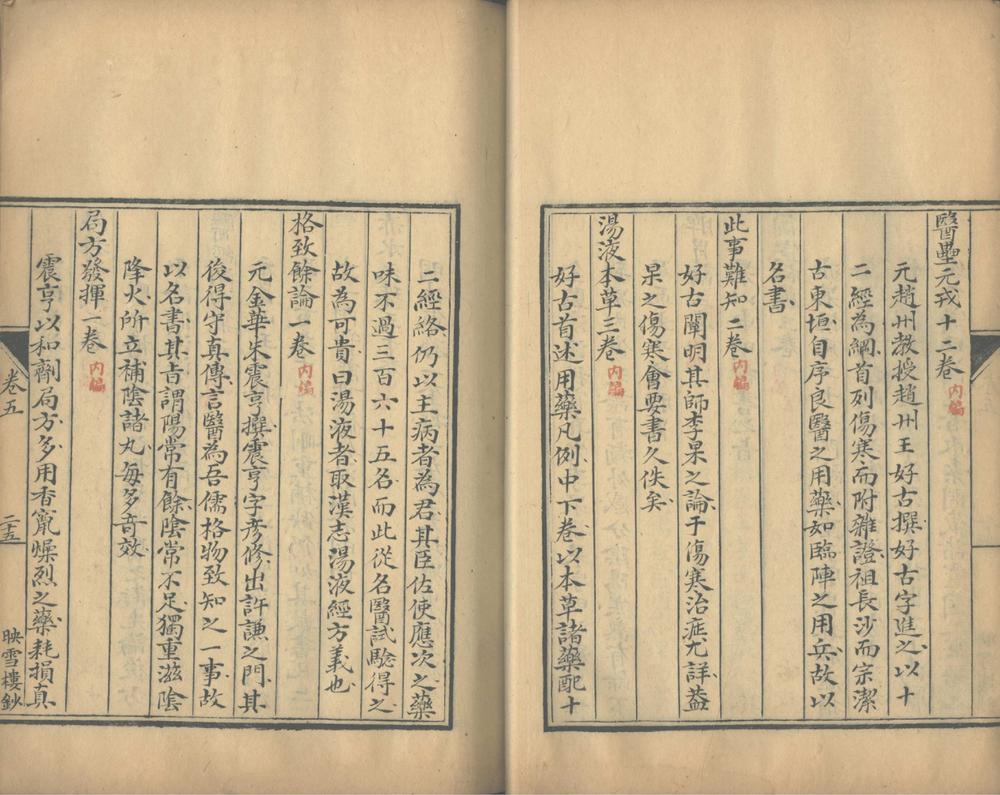 醫壘元戎十二卷 内编
元趙州教授趙州王好古撰好古字進之以十
二經為綱首列傷寒而附雜證祖長沙而宗潔
古東垣自序良醫之用藥如臨陣之用兵故以
名書
此事難知二卷 内编
好古闡明其師李杲之論于傷寒治症尤詳蓋
杲之傷寒會要書久佚矣
湯液本草三卷 内编
好古首述用藥凡例中下卷以本草諸藥配十
二經絡仍以主病者為君其臣佐使應次之藥
味不過三百六十五名而此從名醫試驗得之
故為可貴曰湯液者取漢志湯液經方義也
格致餘論一卷 内编
元金華朱震亨撰震亨字彦修出許謙之門其
後得守真傳言醫為吾儒格物致知之一事故
以名書其旨謂陽常有餘陰常不足獨重滋陰
降火所立補陰諸丸每多奇效
局方發揮一卷 内编
震亨以和劑局方多用香竄燥烈之藥耗損真
卷五
二五
映雪樓鈔